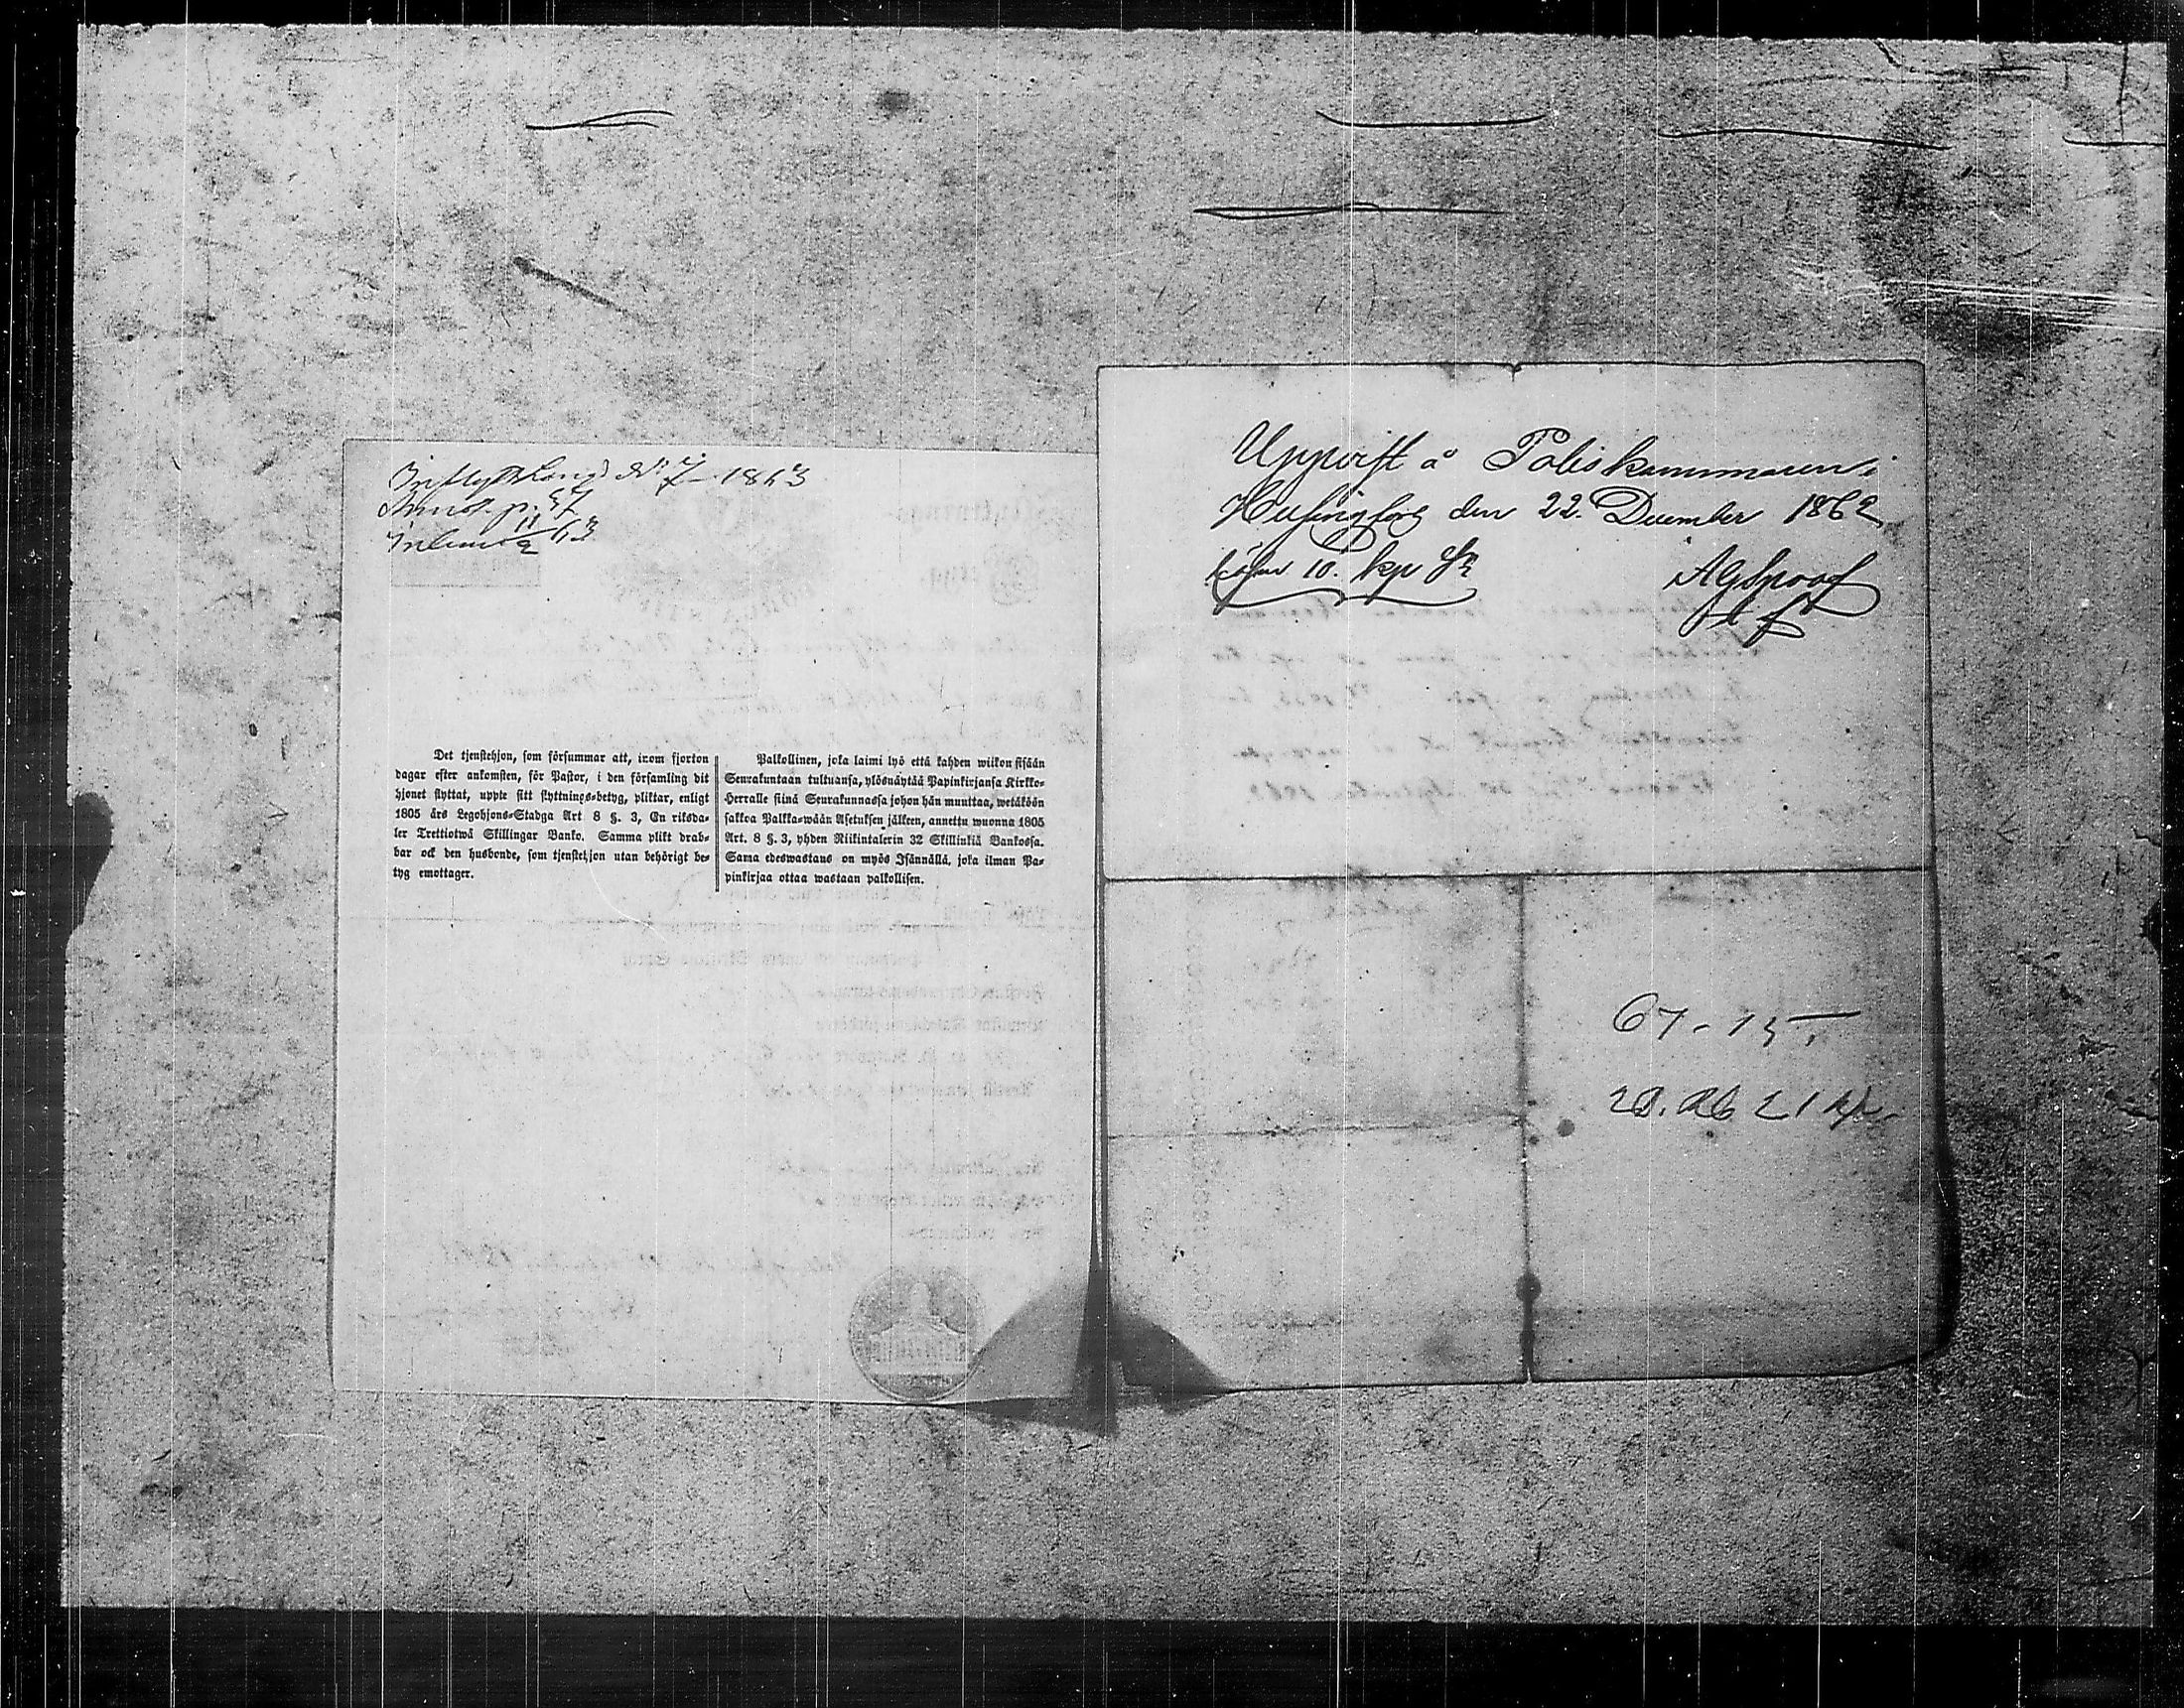 Inflyttn. Läng. No 7 1863
Annot. p. 57
Inlemn. 11/2 63
Det tjenstehjon, som försummar att, inom fjorton
dagar efter ankomsten, för Pastor, i den församling dit
hjonet flyttat, uppte sitt flyttnings-betyg, pliktar, enligt
1805 års Legohjons-Stadga Art 8 §. 3, En riksda-
ler Trettiotwå Skillingar Banko. Samma plikt drab-
bar ock den husbonde, som tjenstehjon utan behörigt be-
tyg emottager.
Palkollinen, joka laimi lyö että kahden wiikon sisään
Seurakuntaan tultuansa, ylösnäytää Papinkirjansa Kirkko-
Herralle siinä Seurakunnassa johon hän muuttaa, wetäköön
sakkoa Palkka-wään Asetuksen jälkeen, annettu wuonna 1805
Art. 8 §. 3, yhden Riikintalerin 32 Skillinkiä Bankossa.
Sama edeswastaus on myös Isännällä, joka ilman Pa-
pinkirjaa ottaa wastaan palkollisen.
Uppvist å Poliskammaren i
Helsingfors den 22. December 1862
lösen 10. kop Sr
AGSpoof
67-15